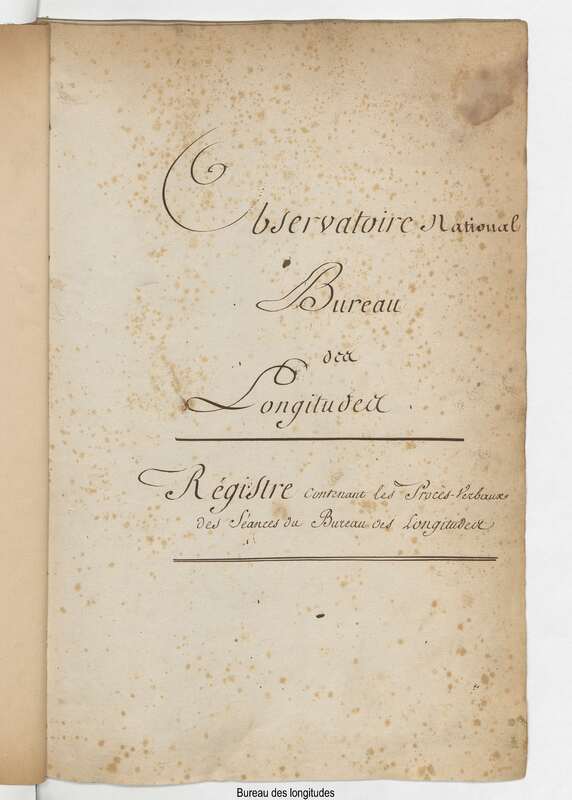 Observatoire National
Bureau
des
Longitudes
Régistre Contenant les Procès-Verbaux
des Séances du Bureau des Longitudes
Bureau des longitudes